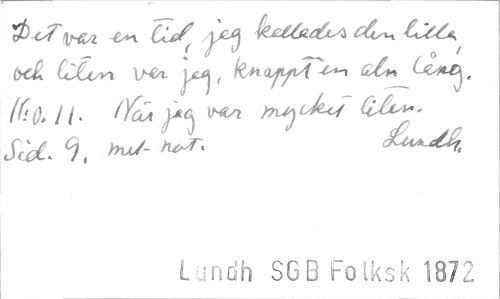 Det var en tid, jag kallades den lilla,
och liten var jag, knappt en aln lång.
N:o. 11. När jag var mycket liten.
Sid. 9. mel-not. Lundh.
Lundh SGB Folksk 1872